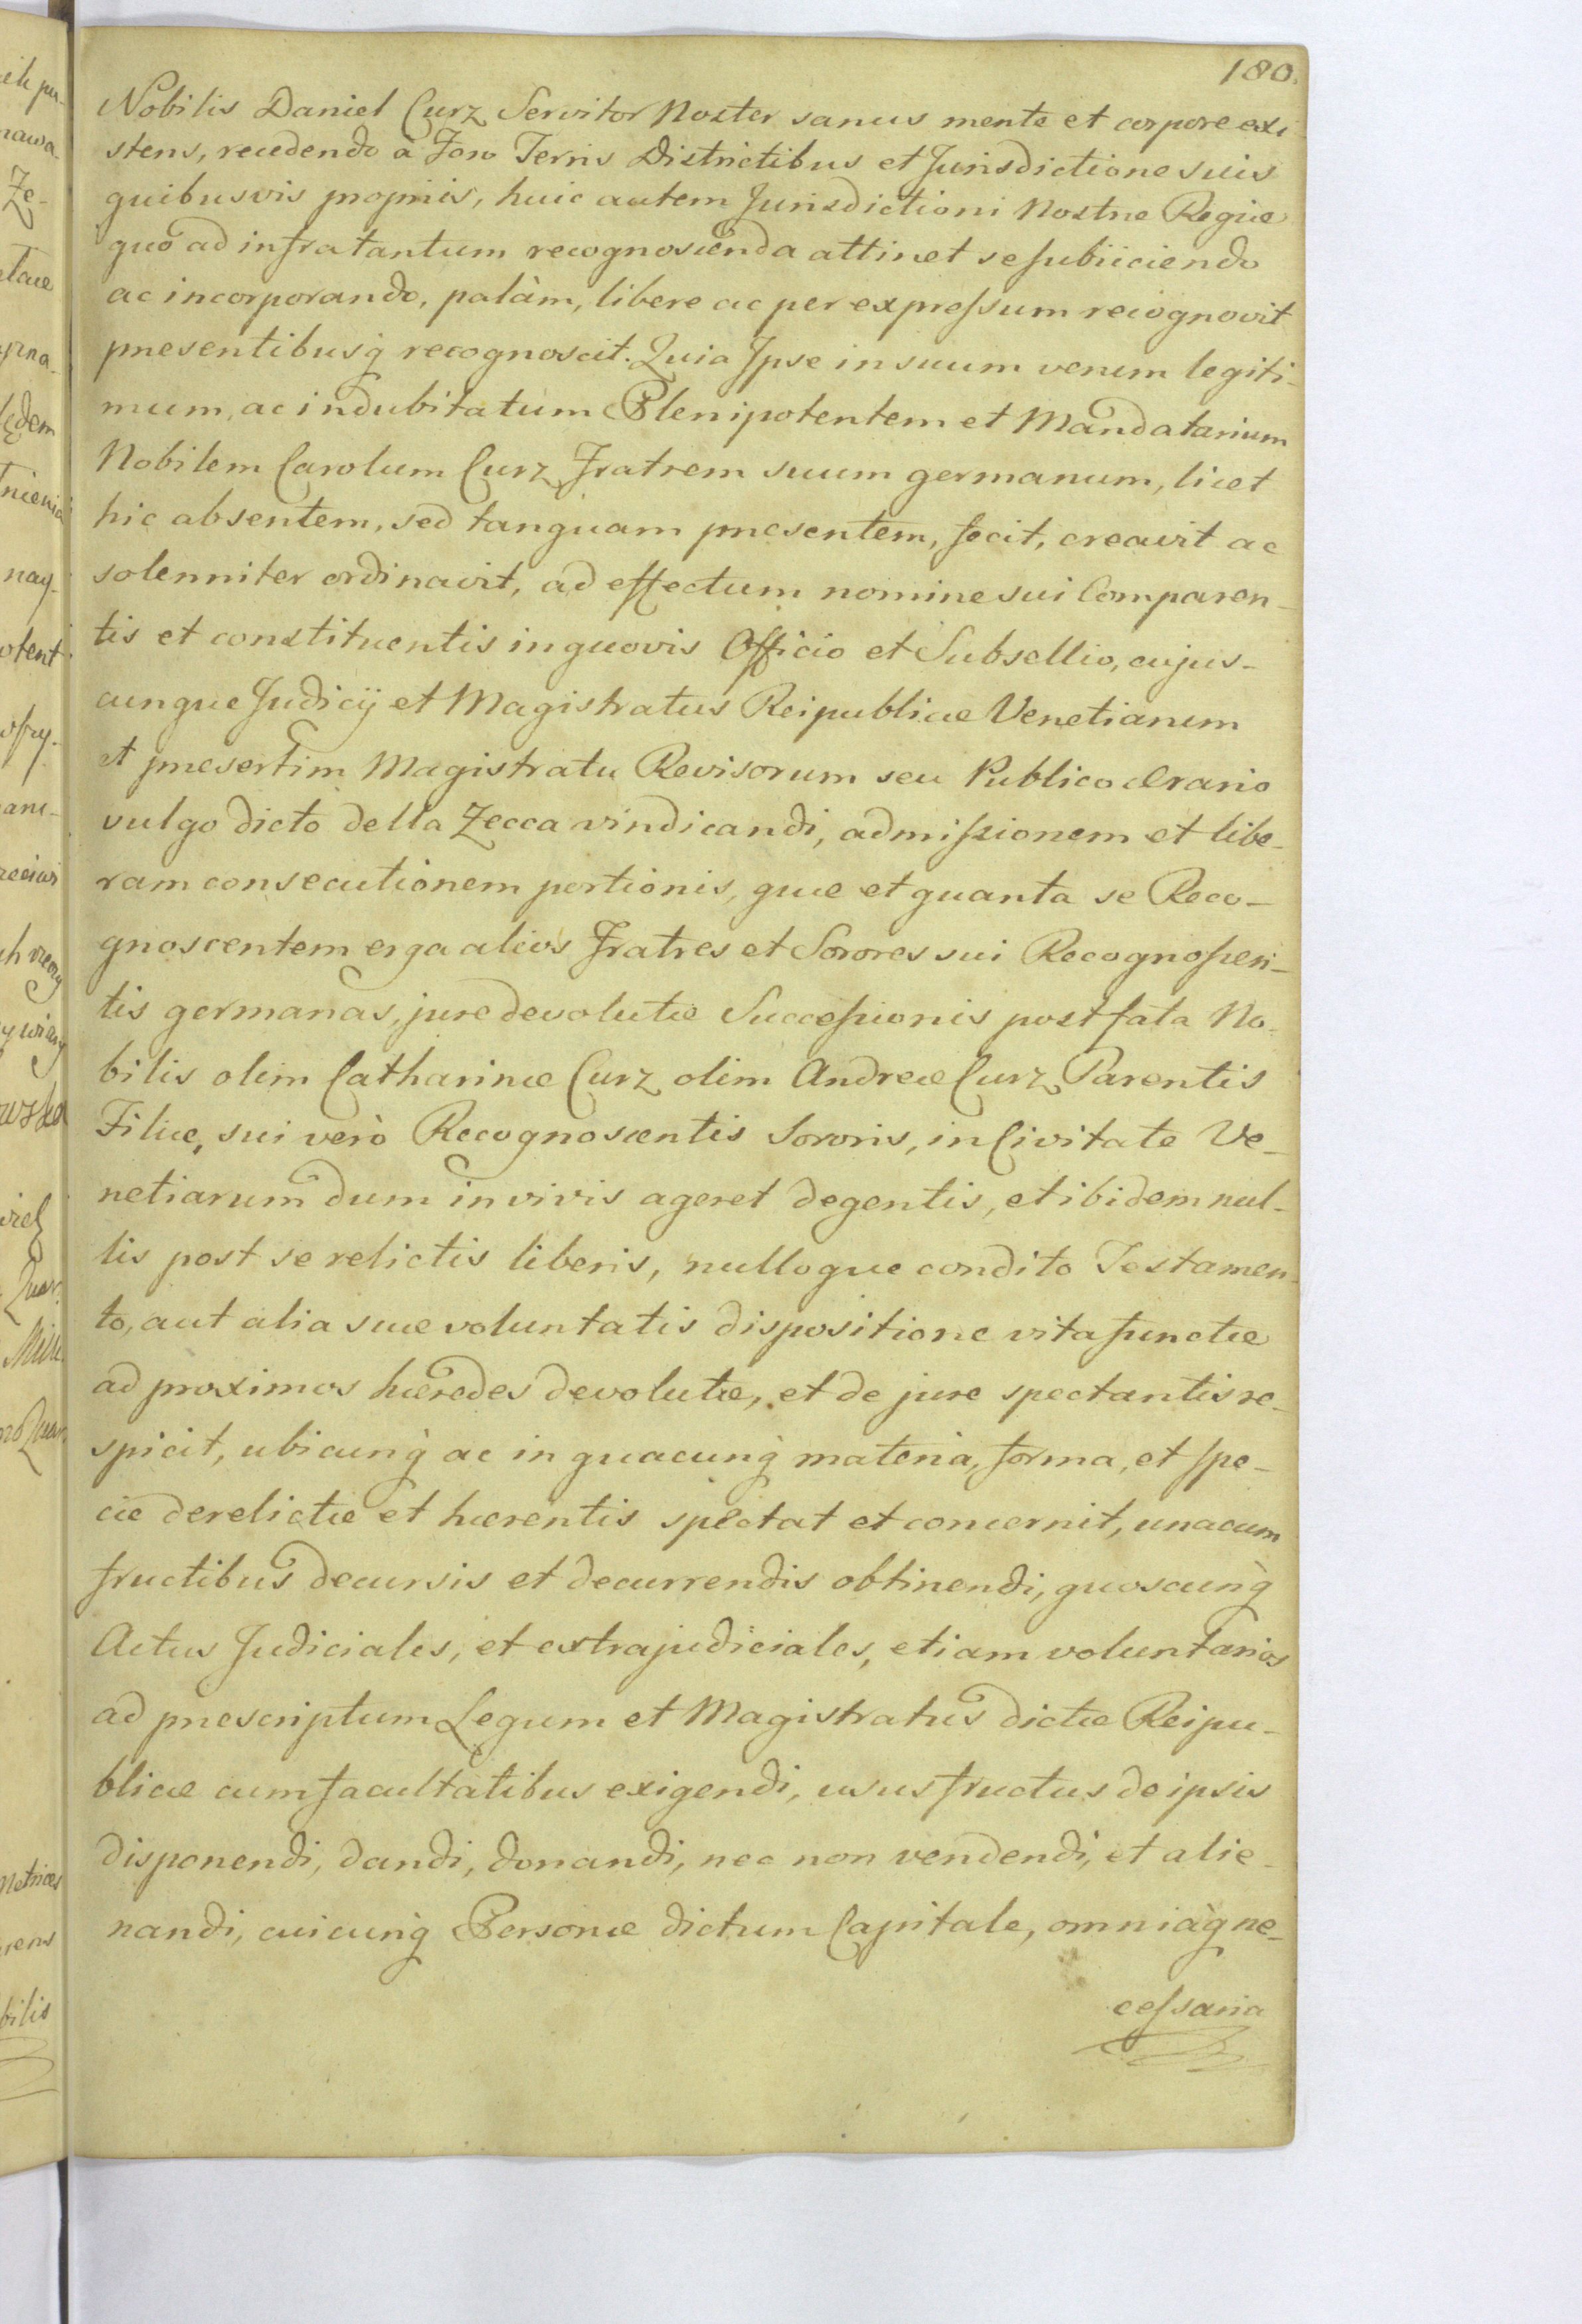 180.
Nobilis Daniel Curz Servitor Noster sanus mente et corpore exi-
stens, recedendo à Foro Terris Districtibus et Jurisdictione suis
quibusvis propriis, huic autem Jurisdictioni Nostræ Regiæ
quo ad infra tantum recognoscenda attinet se subiiciendo
ac incorporando, palàm, libere ac per expressum recognovit
præsentibusq̀ recognoscit. Quia Ipse in suum verum legiti-
mum, ac indubitatum Plenipotentem et Mandatarium
Nobilem Carolum Curz Fratrem suum germanum, licet
hic absentem, sed tanquam præsentem, fecit, creavit ac
solenniter ordinavit, ad effectum nomine sui Comparen-
tis et constituentis in quovis Officio et Subsellio, cujus-
cunque Judicÿ et Magistratus Reipublicæ Venetiarum
et præsertim Magistratu Revisorum seu Publico Ærario
vulgo dicto della Zecca vindicandi, admissionem et libe-
ram consecutionem portionis, quæ et quanta se Reco-
gnoscentem erga alios Fratres et Sorores sui Recognoscen-
tis germanas, jure devolutæ Successionis post fata No-
bilis olim Catharinæ Curz olim Andreæ Curz Parentis
Filiæ, sui verò Recognoscentis Sororis, in Civitate Ve-
netiarum dum in vivis ageret degentis, et ibidem nul-
lis post se relictis liberis, nulloque condito Testamen-
to, aut alia suæ voluntatis dispositione vita functæ
ad proximos hæredes devolutæ, et de jure spectantis re-
spicit, ubicunq̀ ac in quacunq̀ materia, forma, et spe-
cie derelictæ et hærentis spectat et concernit, unacum
fructibus decursis et decurrendis obtinendi, quoscunq̀
Actus Judiciales, et extrajudiciales, etiam voluntarios
ad præscriptum Legum et Magistratus dictæ Reipu-
blicæ cum facultatibus exigendi, usus fructus de ipsis
disponendi, dandi, donandi, nec non vendendi, et alie-
nandi, cuicunq̀ Personæ dictum Capitale, omniàq̀ ne-
cessaria